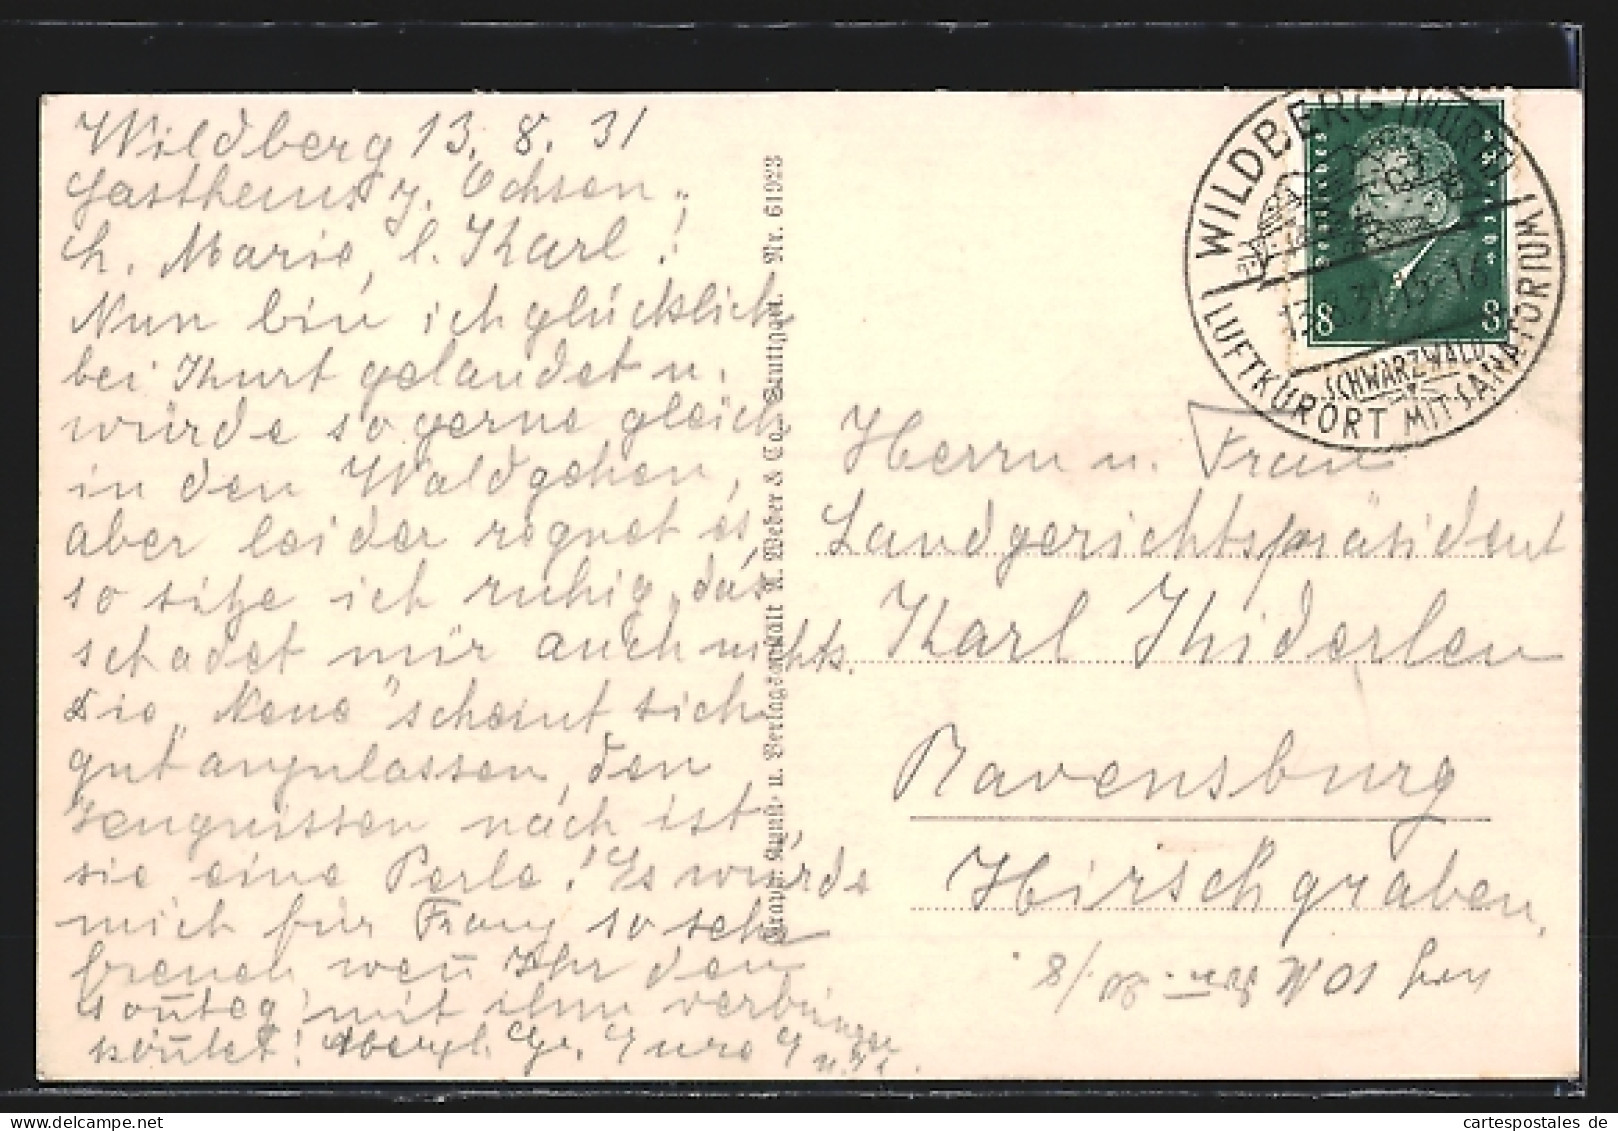 Wildberg 13. 8. 31
Gasthaus z. Ochsen.
Lb. Marie, l. Karl!
Nun bin ich glücklich
bei Kurt gelandet u.
würde so gerne gleich
in den Wald gehen,
aber leider regnet es,
so sitze ich ruhig, das
schadet mir auch nichts.
Die „Neue" scheint sich
gut anzulassen, den
Zeugnissen nach ist
sie eine Perle! Es würde
mich für Franz so sehr
freuen, wen̄ Ihr den
Son̄tag mit ihm verbringen
kön̄tet! Herzl. Gr. Eure
Graph. Kunst- u. Verlagsanstalt A. Weber & Co., Stuttgart. Nr. 61923
WILDBERG (WÜRTT)
LUFTKURORT MIT SANATORIUM
SCHWARZWALD
13.8.31.15-16
Deutsches Reich
8 8
Herrn u. Frau
Landgerichtspräsident
Karl Thiderlen
Ravensburg
Hirschgraben.
cartespostales de
www.delcampe.net